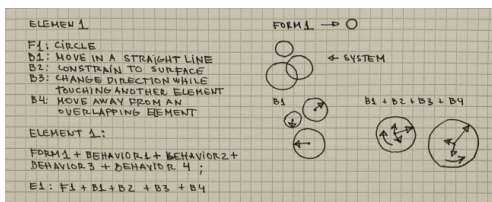 ELEMEN 1
F1: CIRCLE
B1: MOVE IN A STRAIGHT LINE
B2: CONSTRAIN TO SURFACE
B3: CHANGE DIRECTION WHILE
TOUCHING ANOTHER ELEMENT
B4: MOVE AWAY FROM AN
OVERLAPPING ELEMENT
ELEMENT 1:
FORM1 + BEHAVIOR1 + BEHAVIOR2 +
BEHAVIOR3 + BEHAVIOR 4 ;
E1: F1 + B1 + B2 + B3 + B4
FORM1
SYSTEM
B1
B1 + B2 + B3 + B4